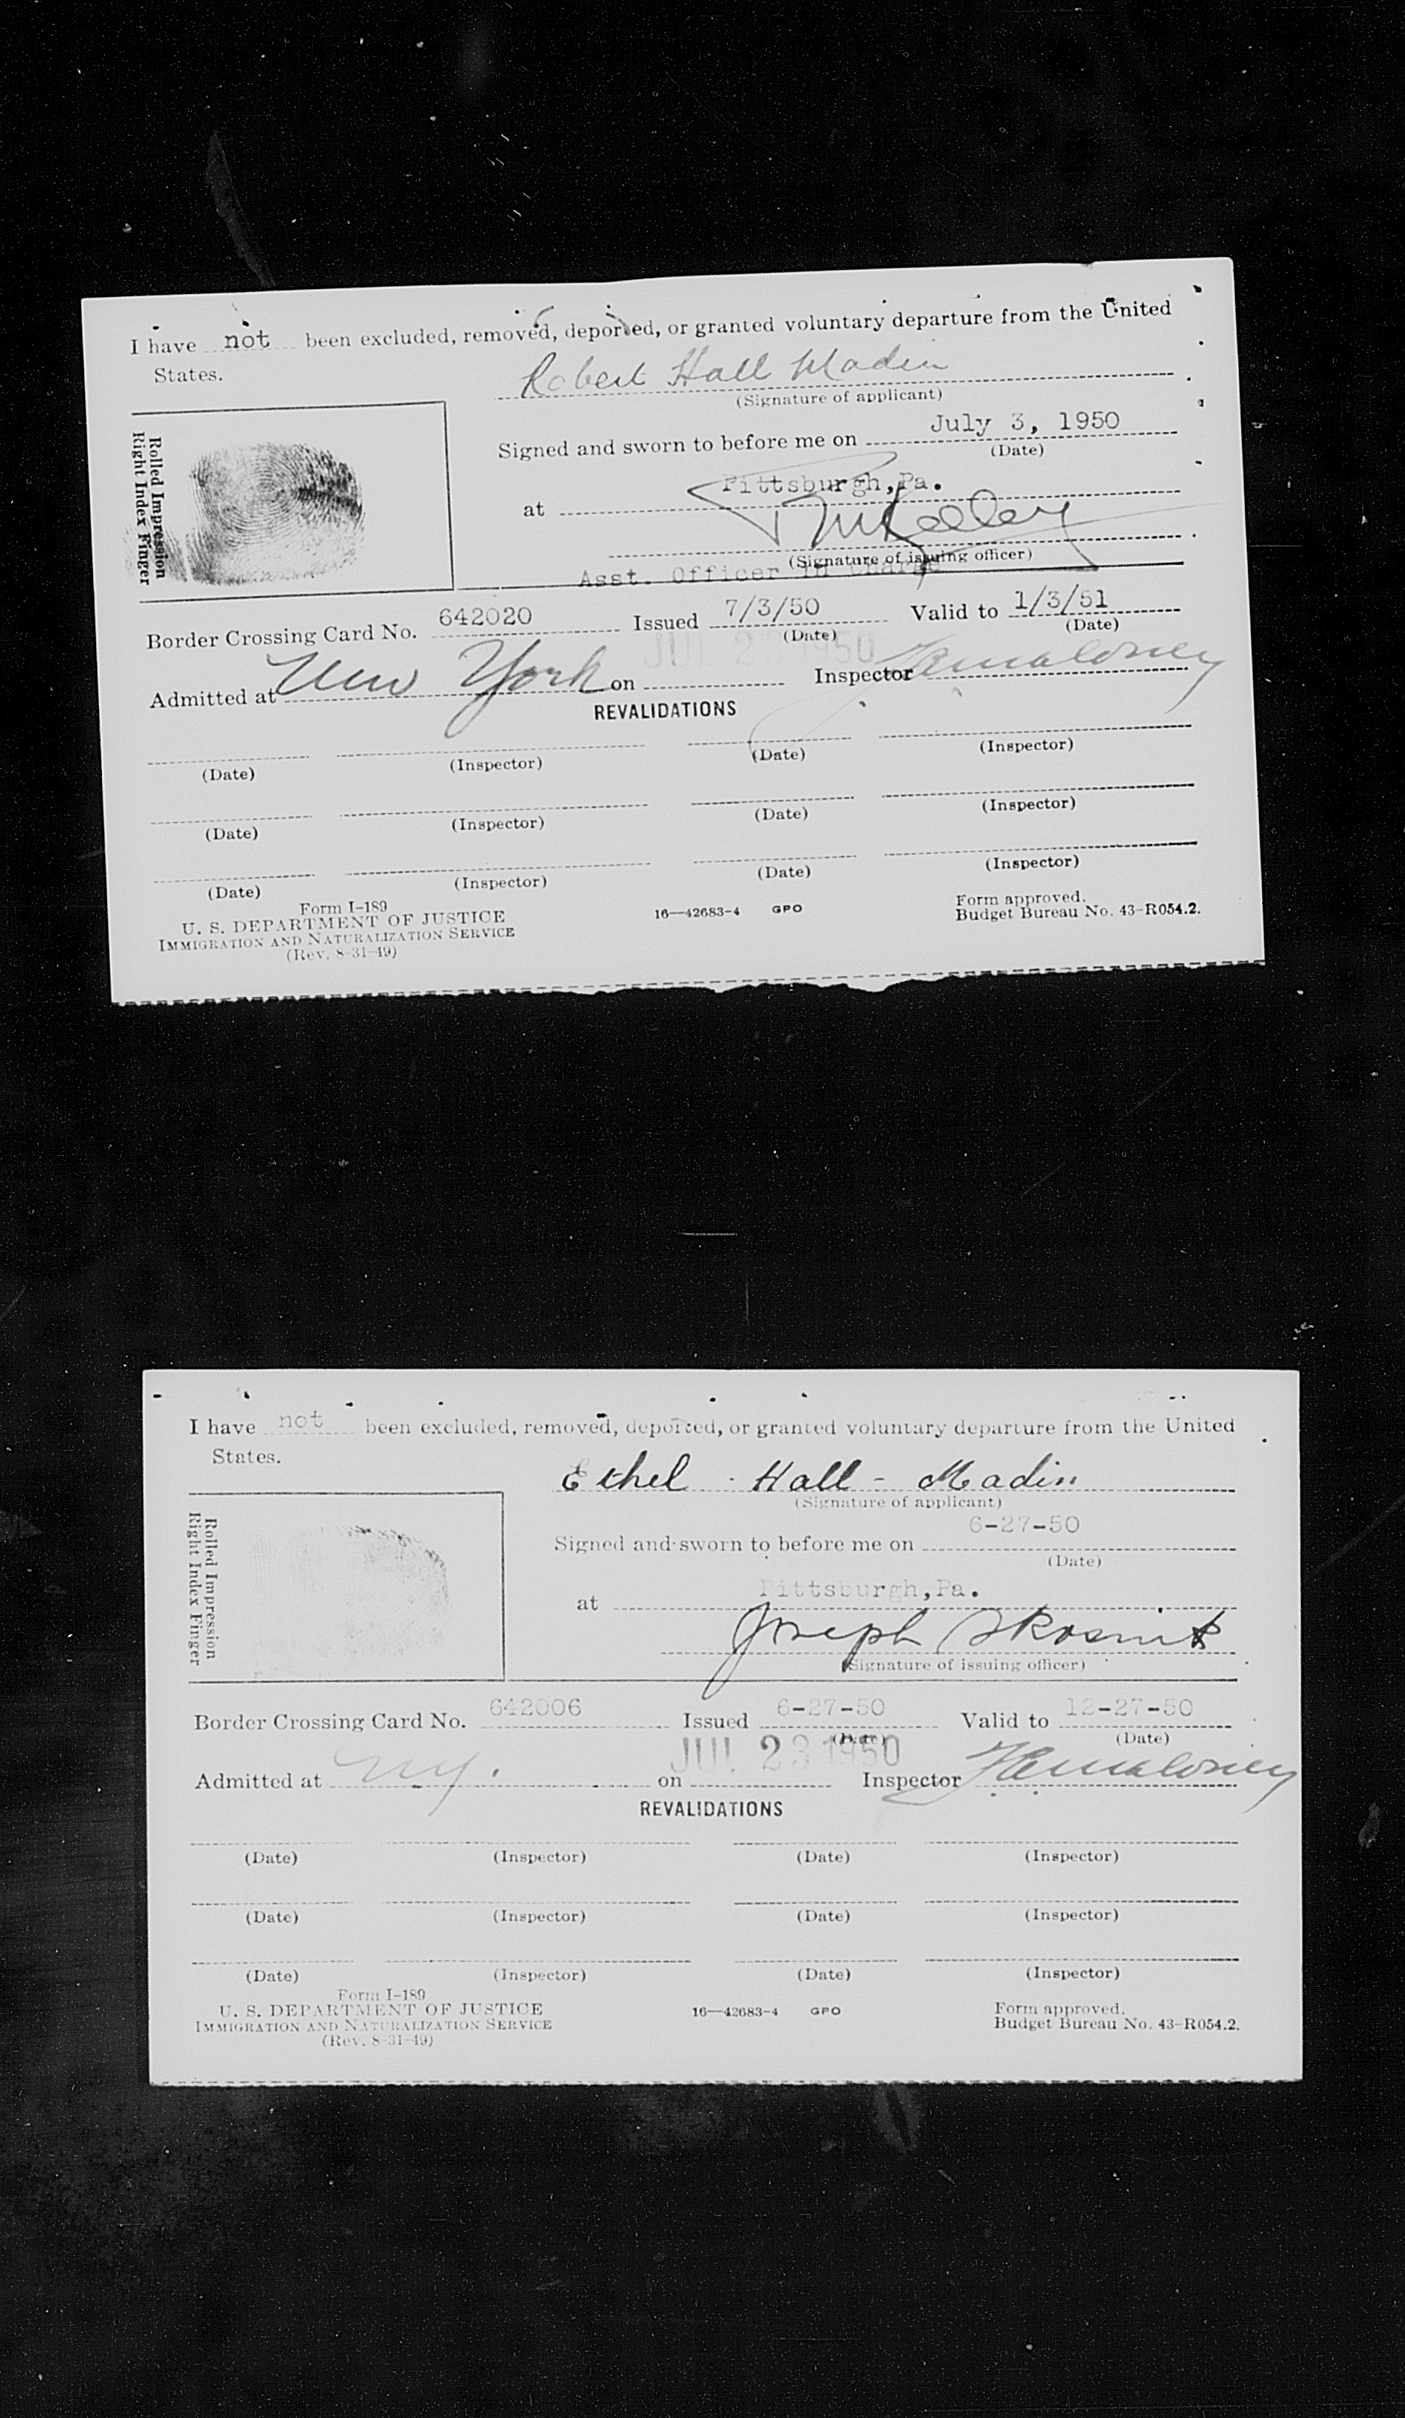 I have not been excluded, removed, deported, or granted voluntary departure from the United
States.
Robert Hall Madin
(Signature of applicant)
Rolled Impression
Right Index Finger
Signed and sworn to before me on July 3, 1950
(Date)
at Pittsburgh, Pa.
(Signature of issuing officer)
Asst. Officer in Charge
Border Crossing Card No. 642020 Issued 7/3/50 Valid to 1/3/51
(Date) (Date)
Admitted at New York on JUL 23 1950 Inspector
REVALIDATIONS
(Date) (Inspector) (Date) (Inspector)
(Date) (Inspector) (Date) (Inspector)
(Date) (Inspector) (Date) (Inspector)
Form I-189
U. S. DEPARTMENT OF JUSTICE
IMMIGRATION AND NATURALIZATION SERVICE
(Rev. 8-31-49)
16—42683-4 GPO
Form approved.
Budget Bureau No. 43-R054.2.
I have not been excluded, removed, deported, or granted voluntary departure from the United
States.
Ethel Hall - Madin
(Signature of applicant)
Rolled Impression
Right Index Finger
Signed and sworn to before me on 6-27-50
(Date)
at Pittsburgh, Pa.
Joseph
(Signature of issuing officer)
Border Crossing Card No. 642006 Issued 6-27-50 Valid to 12-27-50
(Date) (Date)
Admitted at N.Y. on JUL 23 1950 Inspector
REVALIDATIONS
(Date) (Inspector) (Date) (Inspector)
(Date) (Inspector) (Date) (Inspector)
(Date) (Inspector) (Date) (Inspector)
Form I-189
U. S. DEPARTMENT OF JUSTICE
IMMIGRATION AND NATURALIZATION SERVICE
(Rev. 8-31-49)
16—42683-4 GPO
Form approved.
Budget Bureau No. 43-R054.2.